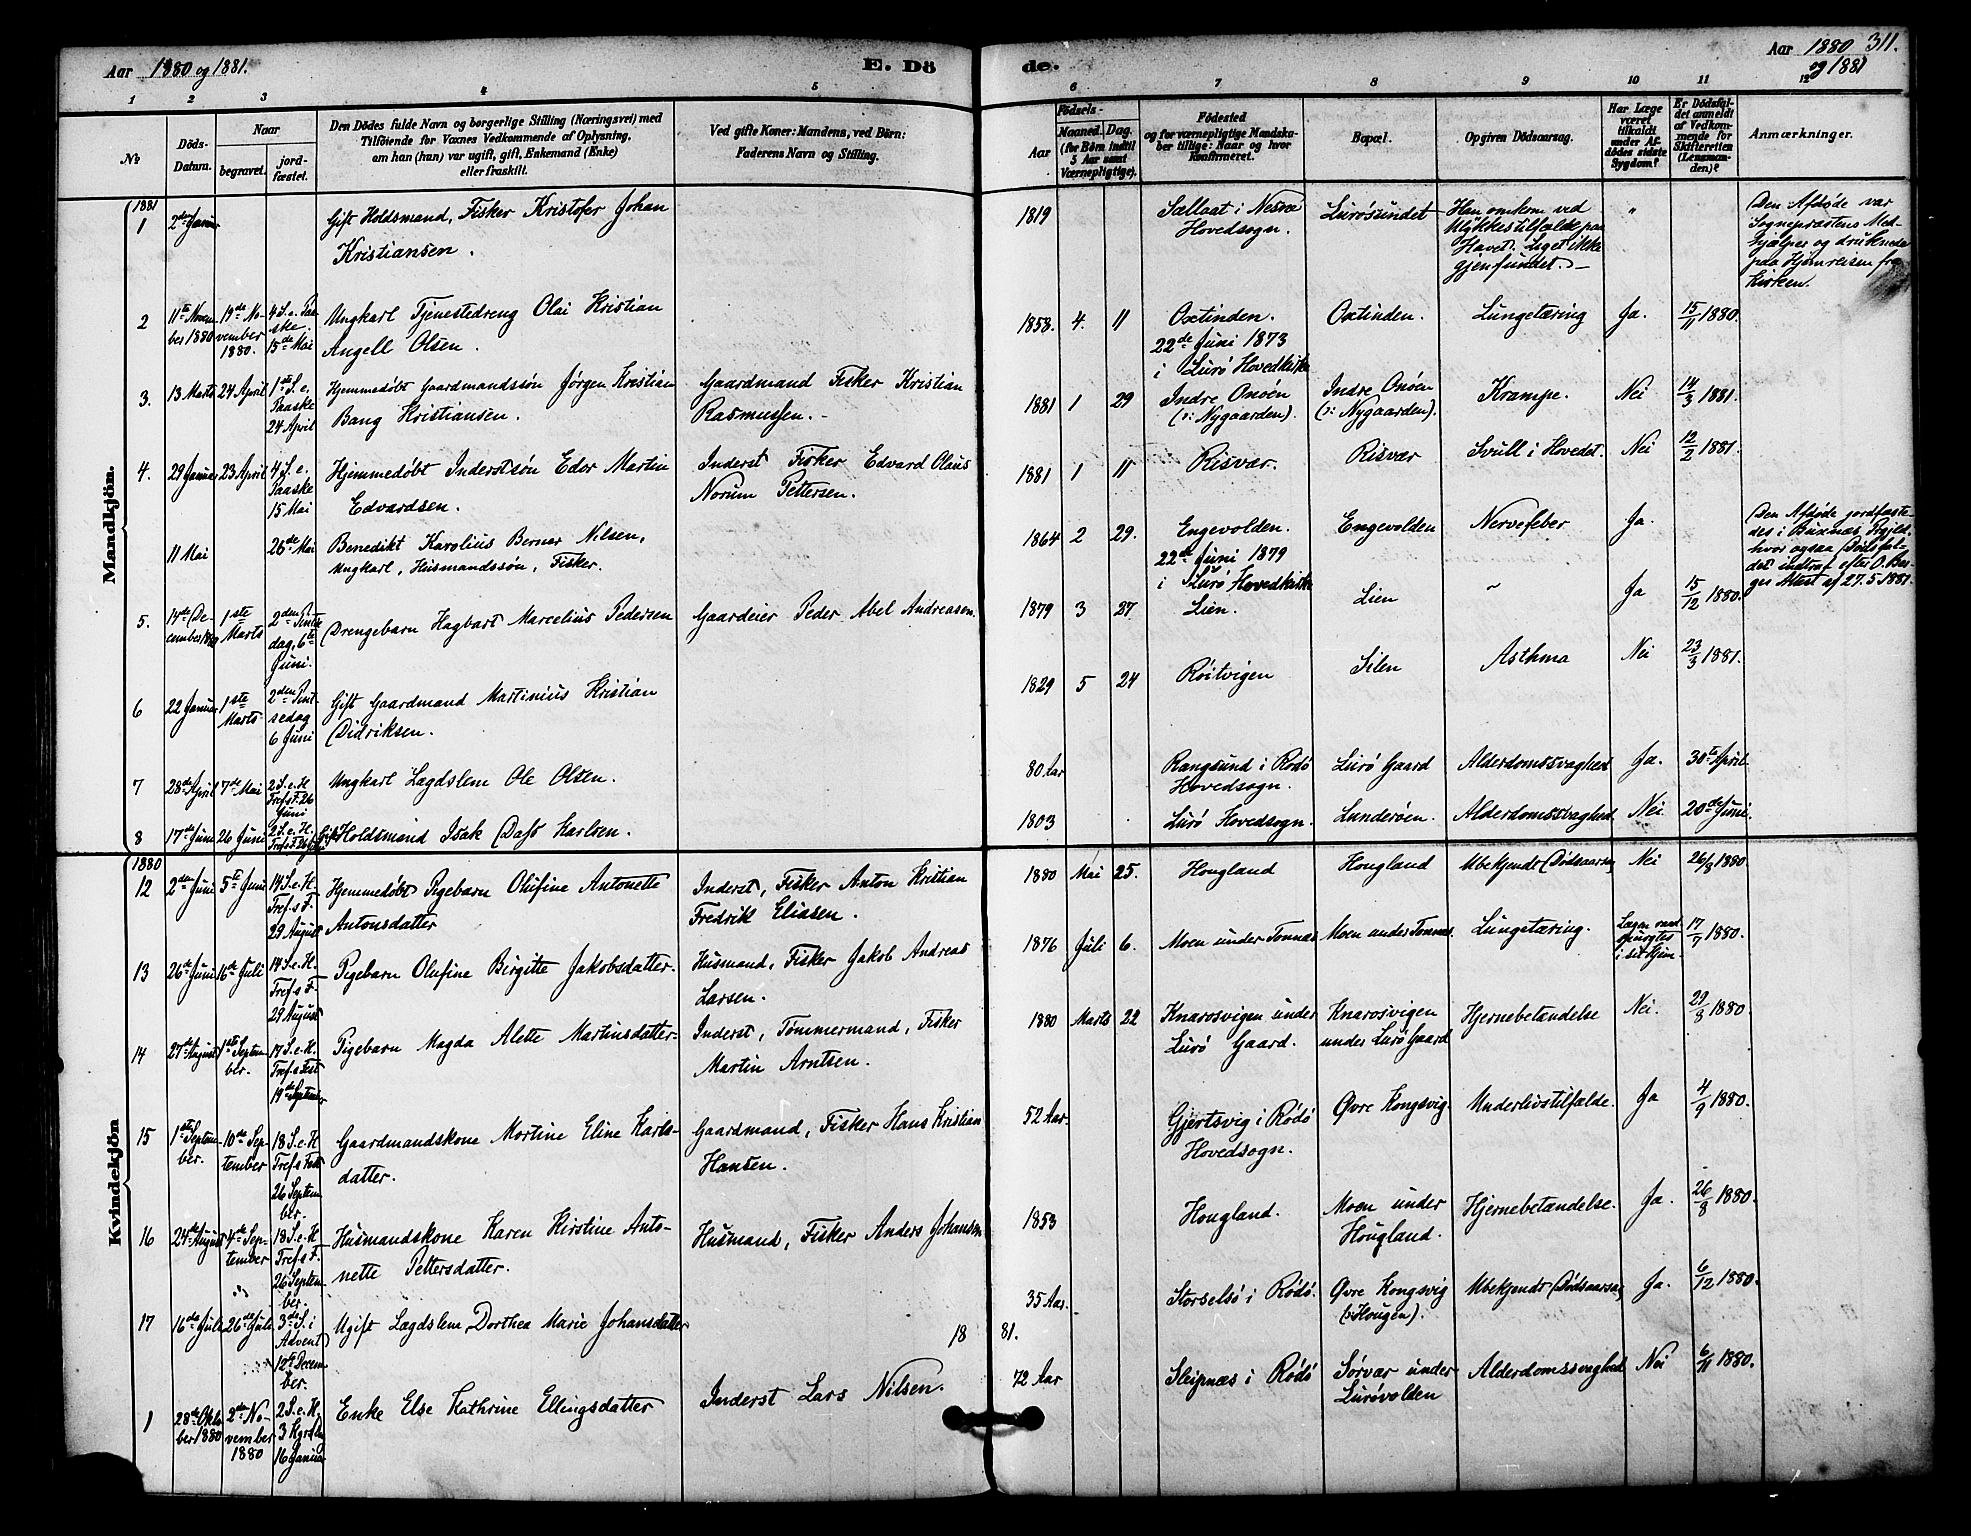 Aar 1880 og 1881.
E. Dö
de.
Aar 1880 og 1881
311.
1 2 3 4 5 6 7 8 9 10 11 12
No
Döds-Datum.
Naar
begravet.
jord-fæstet.
Den Dödes fulde Navn og borgerlige Stilling (Næringsvei) med
Tilföiende for Voxnes Vedkommende af Oplysning,
om han (hun) var ugift, gift, Enkemand (Enke)
eller fraskilt.
Ved gifte Koner: Mandens, ved Börn:
Faderens Navn og Stilling.
Födsels-
Aar
Maaned. Dag.
(for Börn indtil
5 Aar samt
Værnepligtige).
Födested
og for værnepligtige Mandska-
ber tillige: Naar og hvor
Konfirmeret.
Bopæl.
Opgiven Dödsaarsag.
Har Læge
været
tilkaldt
under Af-
dödes sidste
Sygdom?
Er Dödsfal-
det anmeldt
af Vedkom-
mende for
Skifteretten
(Lensman-
den)?
Anmærkninger.
Mandkjön.
1881
1 2den Januar Gift Holdsmand, Fisker Kristofer Johan
Kristiansen.
1819 i Nesne
Hovedsogn. Lurösundet Han omkom ved
Ulykkestilfælde paa
Havet. Liget ikke
gjenfundet. - "
Den Afdöde var
Sognepræstens Med-
hjælper og druknede
paa Hjemreisen fra
Kirken.
2 11te Novem-
ber 1880 19de No-
vember
1880. 4 S. e. Paa-
ske.
15de Mai Ungkarl Tjenestedreng Olai Kristian
Angell Olsen.
1858. 4. 11 Oxtinden.
22de Juni 1873
i Lurö Hovedkirke Oxtinden. Lungetæring Ja. 15/11 1880.
3. 13 Marts 24 April 1ste S. e.
Paaske
24 April Hjemmedöbt Gaardmandssön Jörgen Kristian
Bang Kristiansen. Gaardmand Fisker Kristian
Rasmussen. -
1881 1 29 Indre Onöen
(: Nygaarden). Indre Onöen
(: Nygaarden). Krampe. Nei 14/3 1881.
4. 29 Januar 23 April 4 S. e.
Paaske
15 Mai Hjemmedöbt Inderstsön Edor Martin
Edvardsen. Inderst Fisker Edvard Olaus
Norum Pettersen.
1881 1 11 Risvær. Risvær Svull i Hovedet. Nei 12/2 1881.
11 Mai 26de Mai Benedikt Karolius Bernar Nilsen,
Ungkarl, Husmandssön, Fisker.
1864 2 29. Engevolden.
22de Juni 1879
i Lurö Hovedkirke Engevolden Nervefeber Ja.
Den Afdöde jordfæste-
des i Buxnæs Prgjld.
hvor ogsaa Dödsfal-
det indtraf efter O. Bu-
ges Attest af 27.5.1881.
5. 14de De-
cember 1880 1ste
Marts 2den Pintse
dag, 6te
Juni. Drengebarn Hagbart Marcelius Pedersen Gaardeier Peder Abel Andreasen.
1879 3 27 Lien. Lien ~ Ja 15/12 1880.
6 22 Januar 1ste
Marts- 2den Pint-
sedag
6 Juni Gift Gaardmand Martinius Kristian
Didriksen.
1829 5 24 Röitvigen Silen Asthma Nei 23/3 1881.
7 28de April 7de Mai 2 S. e. H.
Tref. s F. 26
Juni Ungkarl Lægdslem Ole Olsen.
80 Aar Rangsund i Rödö
Hovedsogn. Lurö Gaard Alderdomssvaghed Ja. 30te April
8 17de Juni 26 Juni 2 S. e. H.
Tref. s F. 26 Juni Gift Holdsmand Isak Dass Karlsen.
1803 Lurö Hovedsogn. Lunderöen. Alderdomssvaghed Nei 20de Juni.
Kvindekjön
1880
12 2den Juni 5te Juni 14 S. e. H.
Tref. s F.
29 August Hjemmedöbt Pigebarn Olufine Antonette
Antonsdatter Inderst, Fisker Anton Kristian
Fredrik Eliasen.
1880 Mai 25. Hougland Hougland Ubekjendt Dödsaarsag Nei 26/8 1880.
13 26de Juni 16de Juli 14 S. e. H.
Tref. s F.
29 August Pigebarn Olufine Birgitte Jakobsdatter. Husmand, Fisker Jakob Andreas
Larsen.
1876 Juli 6. Moen under Tonnæs Moen under Tonnæs. Lungetæring. Lægen raad-
spurgtes
i sit Hjem. 17/7 1880.
14 27de August 1ste Septem-
ber. 17 S. e. H.
Tref. s Fest
19de September Pigebarn Magda Alette Martinsdatter. Inderst, Tömmermand, Fisker
Martin Arntsen.
1880 Marts 22 Knarosvigen under
Lurö Gaard. Knarosvigen
under Lurö Gaard Hjernebetændelse Nei. 29/8 1880.
15 1ste Septem-
ber. 10de Sep-
tember 18 S. e. H
Tref. s Fest
26 Septem-
ber. Gaardmandskone Martine Eline Karls-
datter. Gaardmand, Fisker Hans Kristian
Hansen.
52 Aar. Gjertsvig i Rödö
Hovedsogn. Övre Kongsvig. Underlivstilfælde. Ja 4/9 1880.
16 24de August 4de Sep-
tember 18 S. e. H
Tref. s F.
26 Septem-
ber. Husmandskone Karen Kirstine Anto-
nette Pettersdatter. Husmand, Fisker Anders Johansen
1853 Hougland. Moen under
Hougland. Hjernebetændelse. Ja. 26/8 1880.
17 16de Juli 26de Juli 3de S. i
Advent
12te Decem-
ber. Ugift Lægdslem, Dorthea Marie Johansdatter
35 Aar. Storselsö i Rödö. Övre Kongsvig
(: Hougen). Ubekjendt Dödsaarsag Ja. 6/12 1880.
18 81.
1 28de Okto-
ber 1880 2de No-
vember
1880 2 S. e. H.
3 Kgrs
16 Januar Enke Else Kathrine Ellingsdatter Inderst Lars Nilsen.
72 Aar Sleipnæs i Rödö Sörvær under
Lurövolden Alderdomssvaghed Nei 6/11 1880.